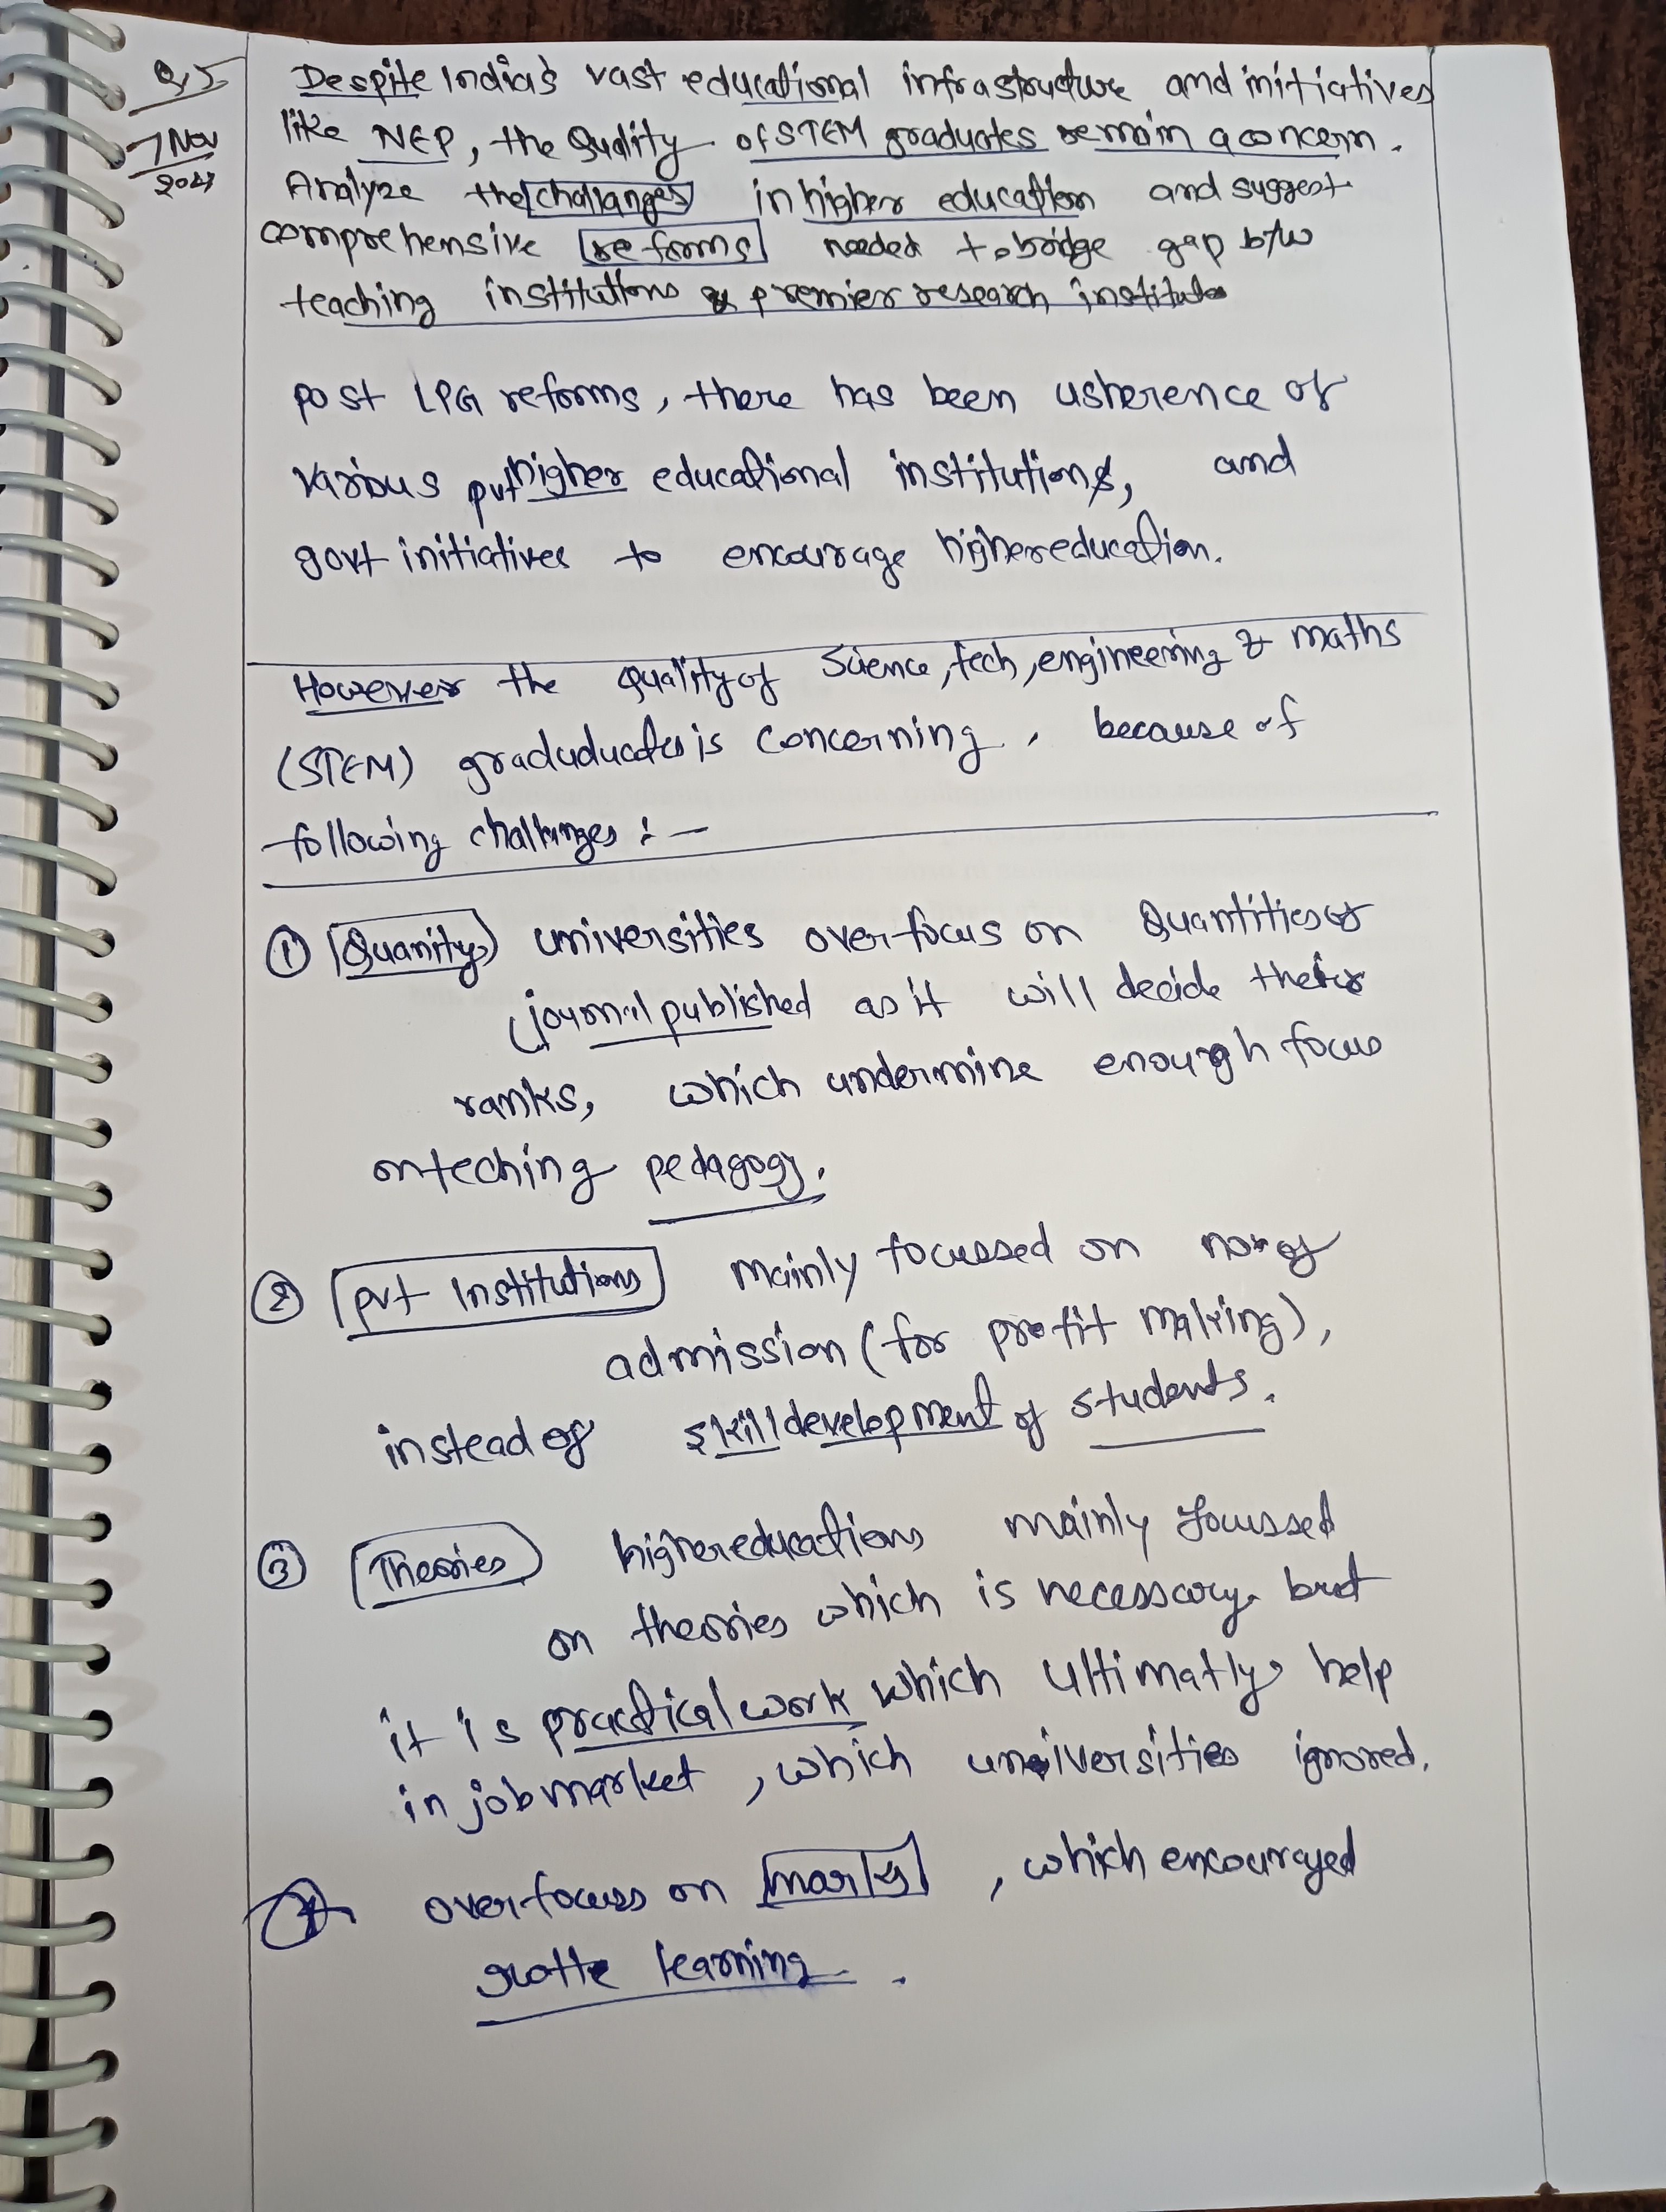 Q.5
7 Nov
2024
Despite India's vast educational infrastructure and initiatives
like NEP, the Quality of STEM graduates remain a concern.
Analyze the challanges in higher education and suggest
comprehensive reforms needed to bridge gap b/w
teaching institutions & premier research institutes
post LPG reforms, there has been usherence of
various pvt higher educational institutions, and
govt initiatives to encourage higher education.
However the Quality of Science, tech, engineering & maths
(STEM) graduducates is concerning, because of
following challanges :-
① Quanity universities overfocus on Quantities of
journal published as it will decide their
ranks, which undermine enough focus
on teching pedagogy.
② pvt Institutions mainly focussed on no. of
admission (for profit making),
instead of skill development of students.
③ Theories higher educations mainly focussed
on theories which is necessary but
it is practical work which ultimatly help
in job market, which universities ignored.
④ overfocus on marks, which encouraged
rotte learning.